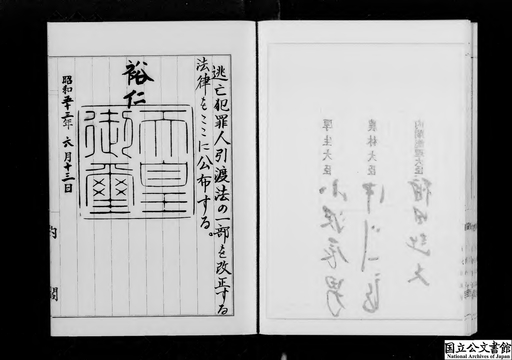 逃亡犯罪人引渡法の一部を改正する
法律をここに公布する。
裕仁
天皇
御璽
昭和五十三年 六月十三日
内閣
内閣総理大臣 福田赳夫
農林大臣 中川一郎
厚生大臣 小沢辰男
国立公文書館
National Archives of Japan